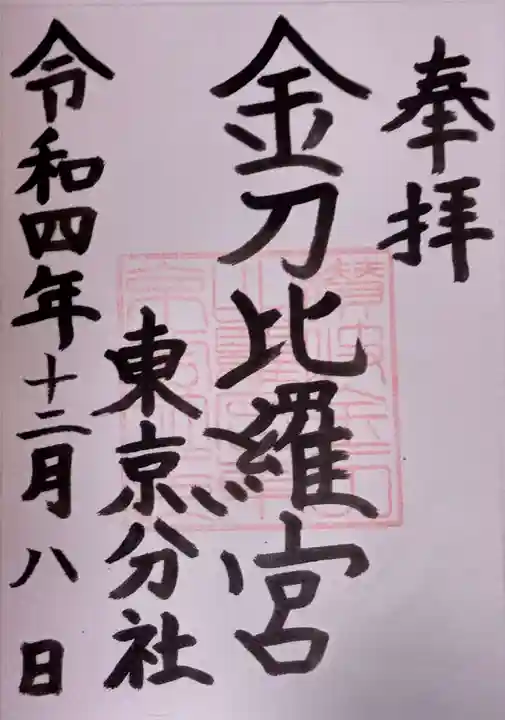 奉拝
金刀比羅宮
東京分社
令和四年十二月八日